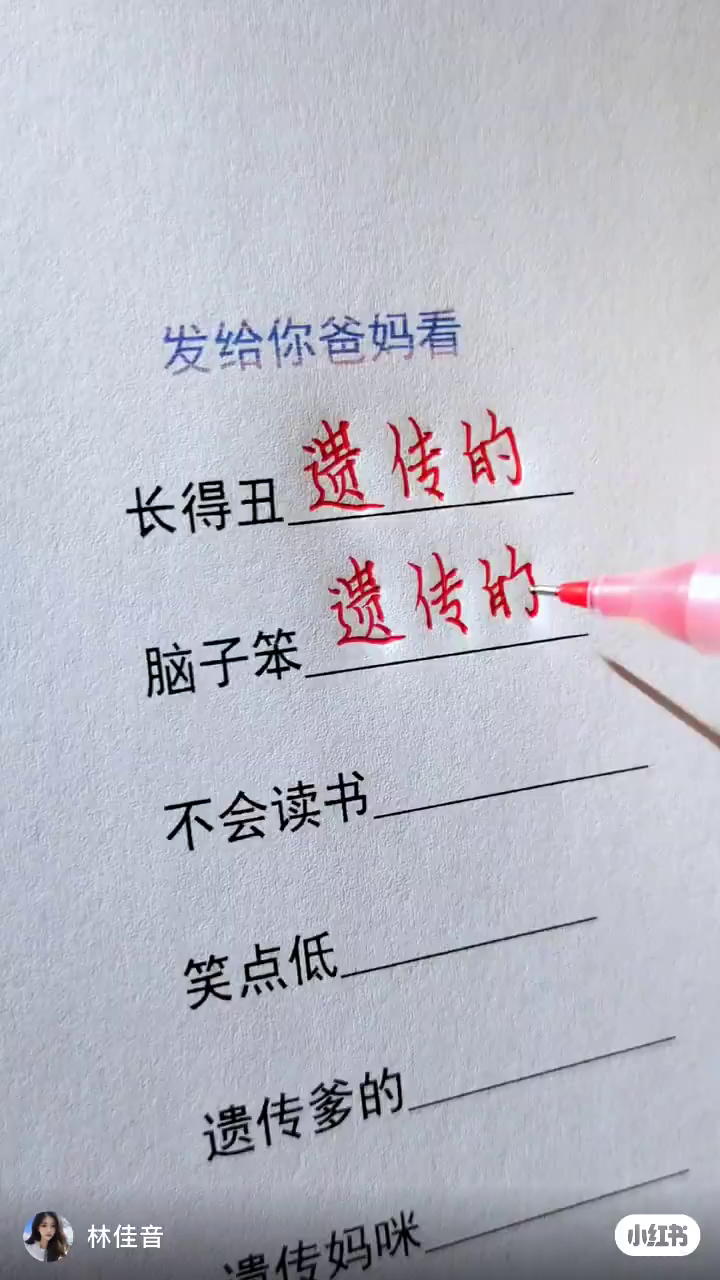 发给你爸妈看
长得丑 遗传的
脑子笨 遗传的
不会读书
笑点低
遗传爹的
遗传妈咪
林佳音
小红书